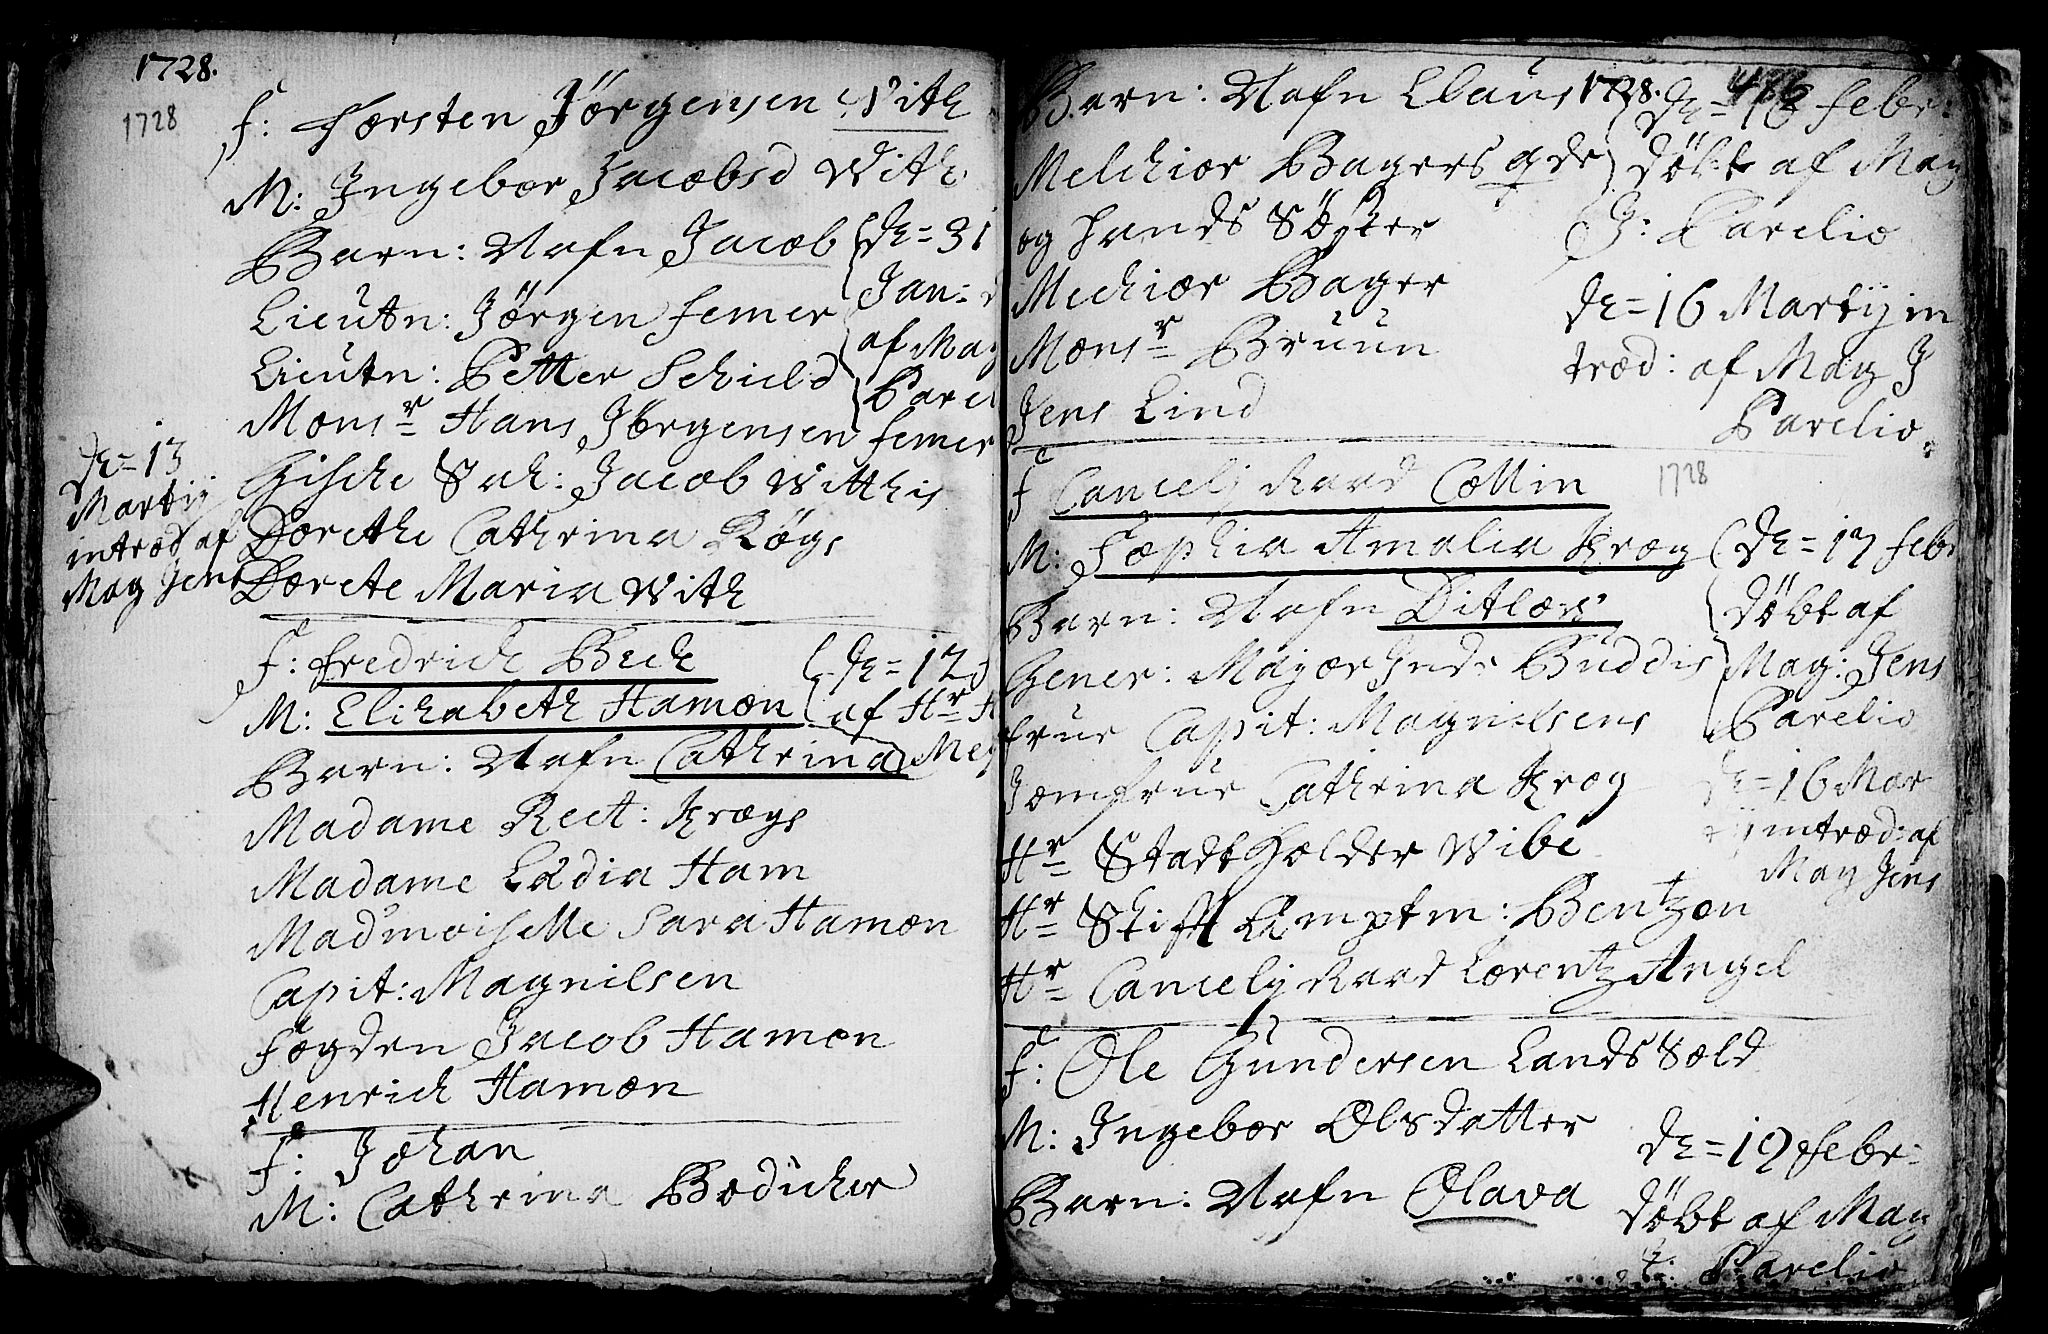 1728.
1728
F: Torsten Jörgensen With
M: Ingebor Jacobsd With
Barn: Nafn Jacob
Lieutn: Jörgen femer
Lieutn: Petter Schield
Monsr Hans Jörgensen femer
Gische Sal: Jacob Withis
Dorethe Cathrina Rögs
Dorete Maria With
de=31
Jan:
af Mag
Parel
de=13
Martij
introd af
Mag Jens
F: fredrich Bech
M: Elisabeth Hamon
Barn: Nafn Cathrina
Madame Rect: Krogs
Madame Lidia Ham
Madmoiselle Sara Hamon
Capit: Magnilsen
Fogden Jacob Hamon
Henrich Hamon
de=12
af Hr H
F: Johan
M: Cathrina Bödicher
1728.
Barn: Nafn Claus
Melchior Bagers
og hands Söster
Mechior Bager
Monsr Bruun
Jens Lind
de=16 febr:
döbt af Mag
J: Parelio
de=16 Martij in
trod: af Mag J
Parelio.
1728
F Cancelj Raad Collin
M: Sophia Amalia Krog
Barn: Nafn Ditlov
Gener: Major Buddis
frue Capit: Magnilsens
Jomfrue Cathrina Krog
Hr Stadtholder Wibe
Hr Stift Amptm: Bentzon
Hr Cancelij Raad Lorentz Angel
de=17 febr
döbt af
Mag: Jens
Parelio
de=16 Mar
tij introd: af
Mag Jens
F: Ole Gundersen Lands Sold
M: Ingebor Olsdatter
Barn: Nafn Olava
de=19 febr:
döbt af Mag
J: Parelio